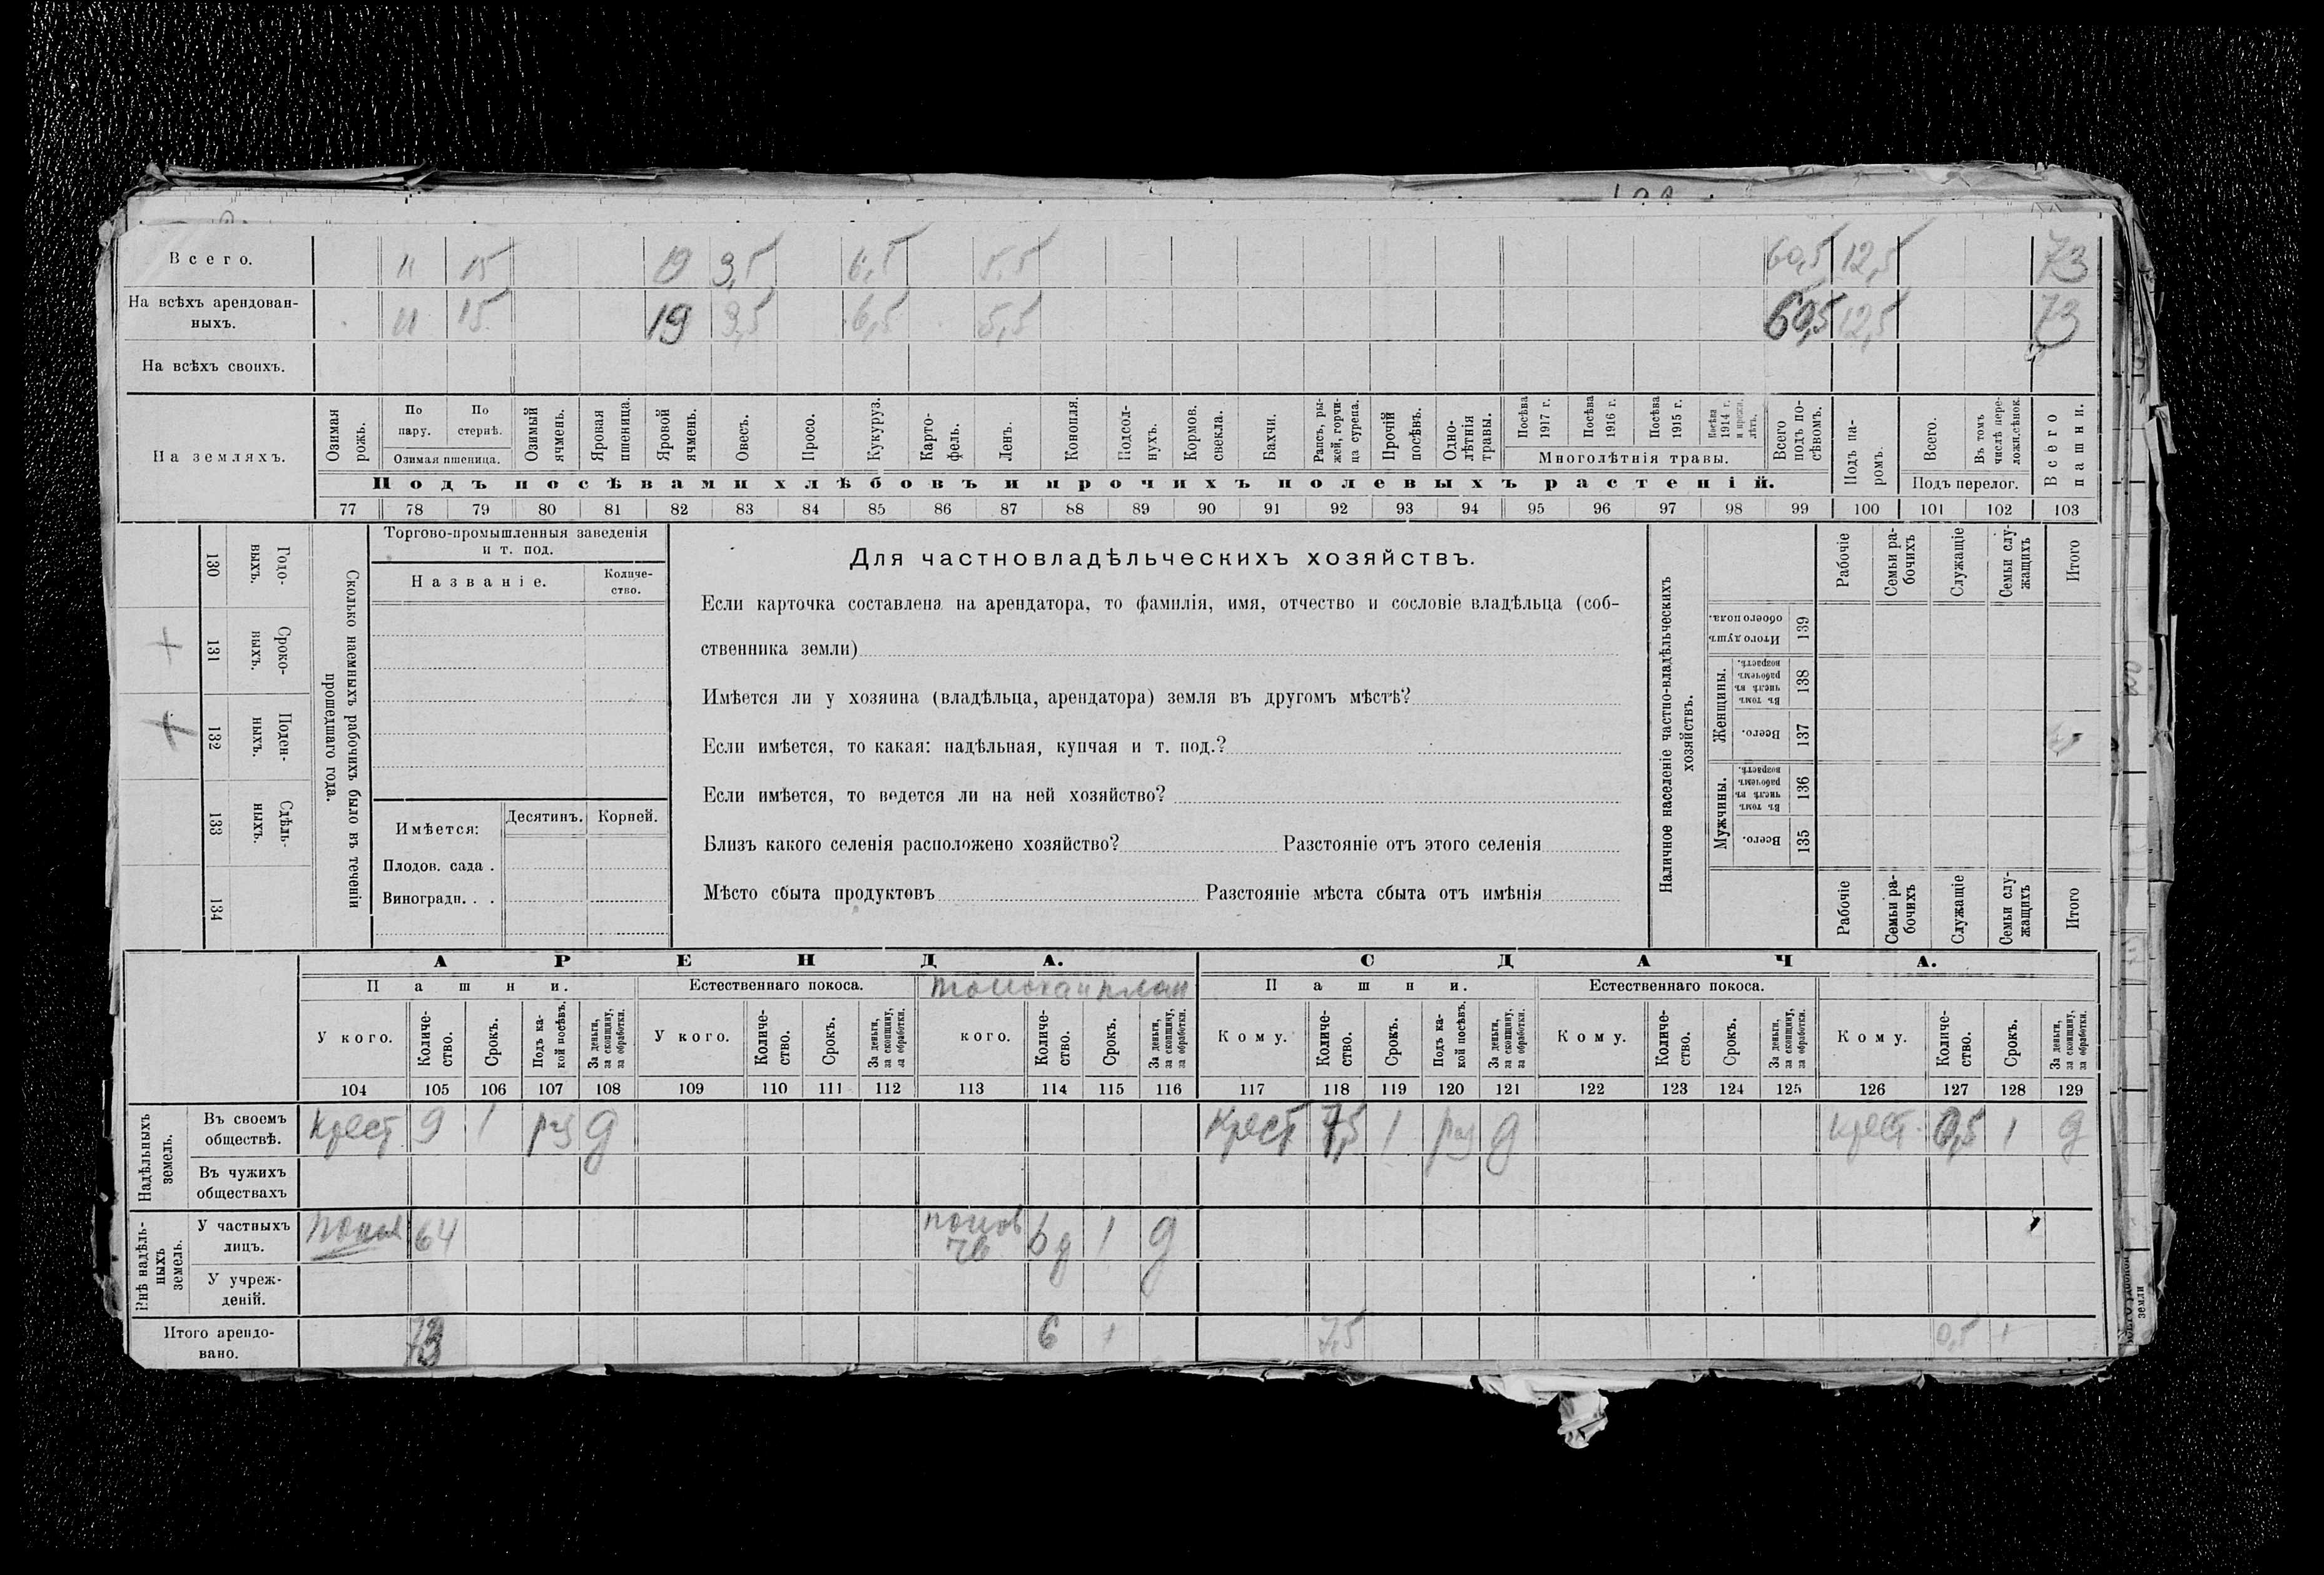 Всего. 11 15 19 3,5 6,5 5,5 60,5 12,5 73
На всѣхъ арендован-
ныхъ. 11 15 19 3,5 6,5 5,5 60,5 12,5 73
На всѣхъ своихъ.
На земляхъ.
Озимая рожь.
По пару.
По стернѣ.
Озимая пшеница.
Озимый ячмень.
Яровая пшеница.
Яровой ячмень.
Овесъ.
Просо.
Кукуруз.
Карто-
фель.
Ленъ.
Конопля.
Подсол-
нухъ.
Кормов. свекла.
Бахчи.
Рапсъ, ры-
жей, горчи-
ца сурепа.
Прочій посѣвъ.
Одно-
лѣтнія травы.
Посѣва 1917 г.
Посѣва 1916 г.
Посѣва 1915 г.
Посѣва 1914 г.
и прежн. лѣтъ.
Многолѣтнія травы.
Всего подъ по-
сѣвомъ.
Подъ па-
ромъ.
Всего.
Въ томъ числѣ пере-
ложн.сѣнок.
Подъ перелог.
Всего пашни.
Подъ посѣвами хлѣбовъ и прочихъ полевыхъ растеній.
77 78 79 80 81 82 83 84 85 86 87 88 89 90 91 92 93 94 95 96 97 98 99 100 101 102 103
130 Годо-
выхъ.
+ 131 Сроко-
ныхъ.
+ 132 Поден-
ныхъ.
133 Сдѣль-
ныхъ.
134
Сколько наемныхъ рабочихъ было въ теченіи
прошедшаго года.
Торгово-промышленныя заведенія
и т. под.
Названіе.
Количе-
ство.
Имѣется: Десятинъ. Корней.
Плодов. сада .
Виноградн. . .
Для частновладѣльческихъ хозяйствъ.
Если карточка составлена на арендатора, то фамилія, имя, отчество и сословіе владѣльца (соб-
ственника земли)
Имѣется ли у хозяина (владѣльца, арендатора) земля въ другомъ мѣстѣ?
Если имѣется, то какая: надѣльная, купчая и т. под.?
Если имѣется, то ведется ли на ней хозяйство?
Близъ какого селенія расположено хозяйство? Разстояніе отъ этого селенія
Мѣсто сбыта продуктовъ Разстояніе мѣста сбыта отъ имѣнія
Наличное населеніе частно-владѣльческихъ
хозяйствъ.
Рабочіе
Семьи ра-
бочихъ
Служащіе
Семьи слу-
жащихъ
Итого
Итого душъ
обоего пола. 139
Женщины.
Въ томъ числѣ въ рабочемъ возрастѣ. 138
Всего. 137
Мужчины.
Въ томъ числѣ въ рабочемъ возрастѣ. 136
Всего. 135
Рабочіе
Семьи ра-
бочихъ
Служащіе
Семьи слу-
жащихъ
Итого
АРЕНДА. СДАЧА.
Пашни. Естественнаго покоса. Пашни. Естественнаго покоса.
У кого.
Количе-
ство.
Срокъ.
Подъ ка-
кой посѣвъ.
За деньги,
за скопщину,
за обработки.
У кого.
Количе-
ство.
Срокъ.
За деньги,
за скопщину,
за обработки.
кого.
Количе-
ство.
Срокъ.
За деньги,
за скопщину,
за обработки.
Кому.
Количе-
ство.
Срокъ.
Подъ ка-
кой посѣвъ.
За деньги,
за скопщину,
за обработки.
Кому.
Количе-
ство.
Срокъ.
За деньги,
за скопщину,
за обработки.
Кому.
Количе-
ство.
Срокъ.
За деньги,
за скопщину,
за обработки.
104 105 106 107 108 109 110 111 112 113 114 115 116 117 118 119 120 121 122 123 124 125 126 127 128 129
Надѣльныхъ
земель.
Въ своемъ
обществѣ. Крест 9 1 раз д Крест 7,5 1 раз д крест. 0,5 1 д
Въ чужихъ
обществахъ
Внѣ надѣль-
ныхъ
земель.
У частныхъ
лицъ. 64 6 д 1 д
У учреж-
деній.
Итого арендо-
вано. 73 6 + 7,5 0,5 +
земли